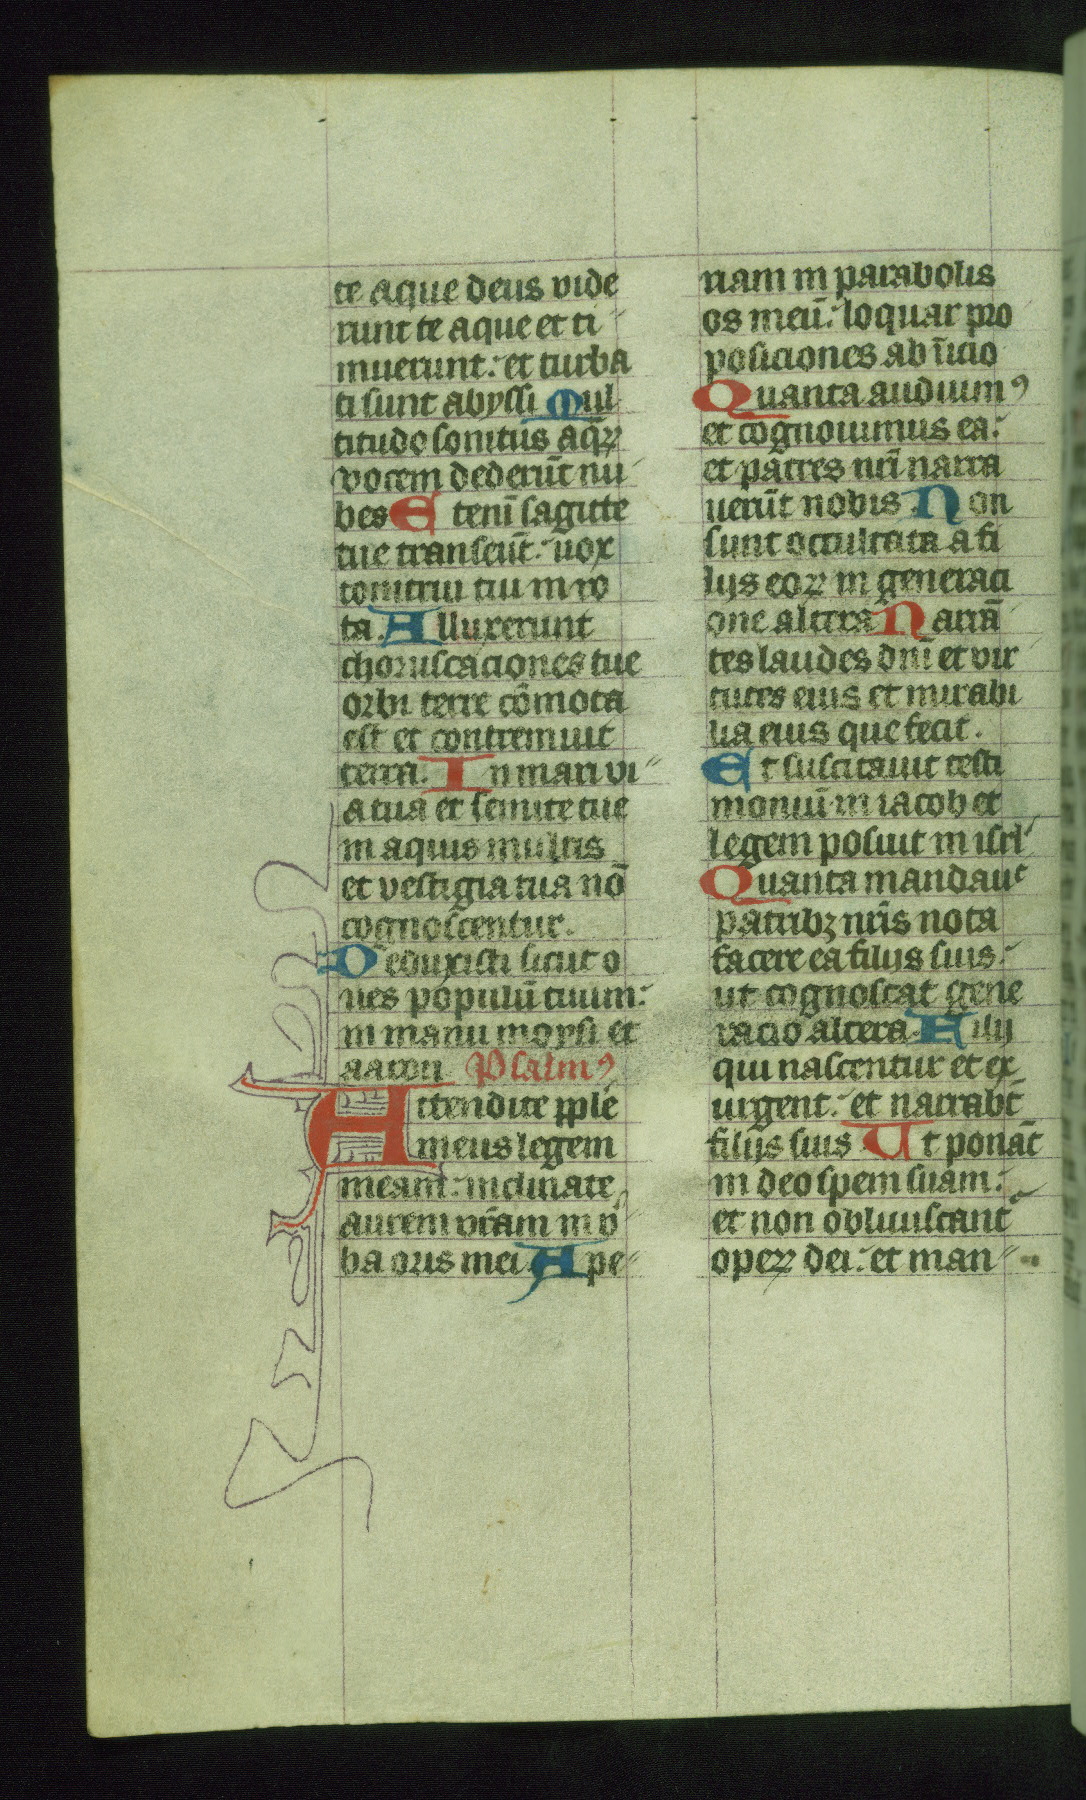 te aque deus vide
runt te aque et ti
muerunt: et turba
ti sunt abyssi Mul
titudo sonitus aq̄ꝝ
vocem dederūt nu
bes Etenī sagitte
tue transeūt: uox
tonitrui tui in ro
ta. Alluxerunt
choruscaciones tue
orbi terre cōmota
est et contremuit
terra. In mari vi
a tua et semite tue
in aquis multis
et vestigia tua nō
cognoscentur.
Deduxisti sicut o
ues populū tuum:
in manu moysi et
aaron Psalmꝰ
Attendite pple
meus legem
meam: inclinate
aurem vr̄am in v̓
ba oris mei. Ape
riam in parabolis
os meū: loquar pro
posiciones ab īicio
Quanta audiuimꝰ
et cognouimus ea:
et patres nrī narra
uerūt nobis. Non
sunt occultata a fi
lijs eoꝝ in generaci
one altera Narrā
tes laudes dnī et vir
tutes eius et mirabi
lia eius que fecit.
Et suscitauit testi
moniū in iacob et
legem posuit in isrl̓
Quanta mandauᵗ
patribꝫ nrīs nota
facere ea filijs suis:
ut cognoscat gene
racio altera. Filij
qui nascentur et ex
urgent: et narrabt̄
filijs suis Ut ponāt
in deo spem suam:
et non obliuiscant᷑
opeꝝ dei: et man